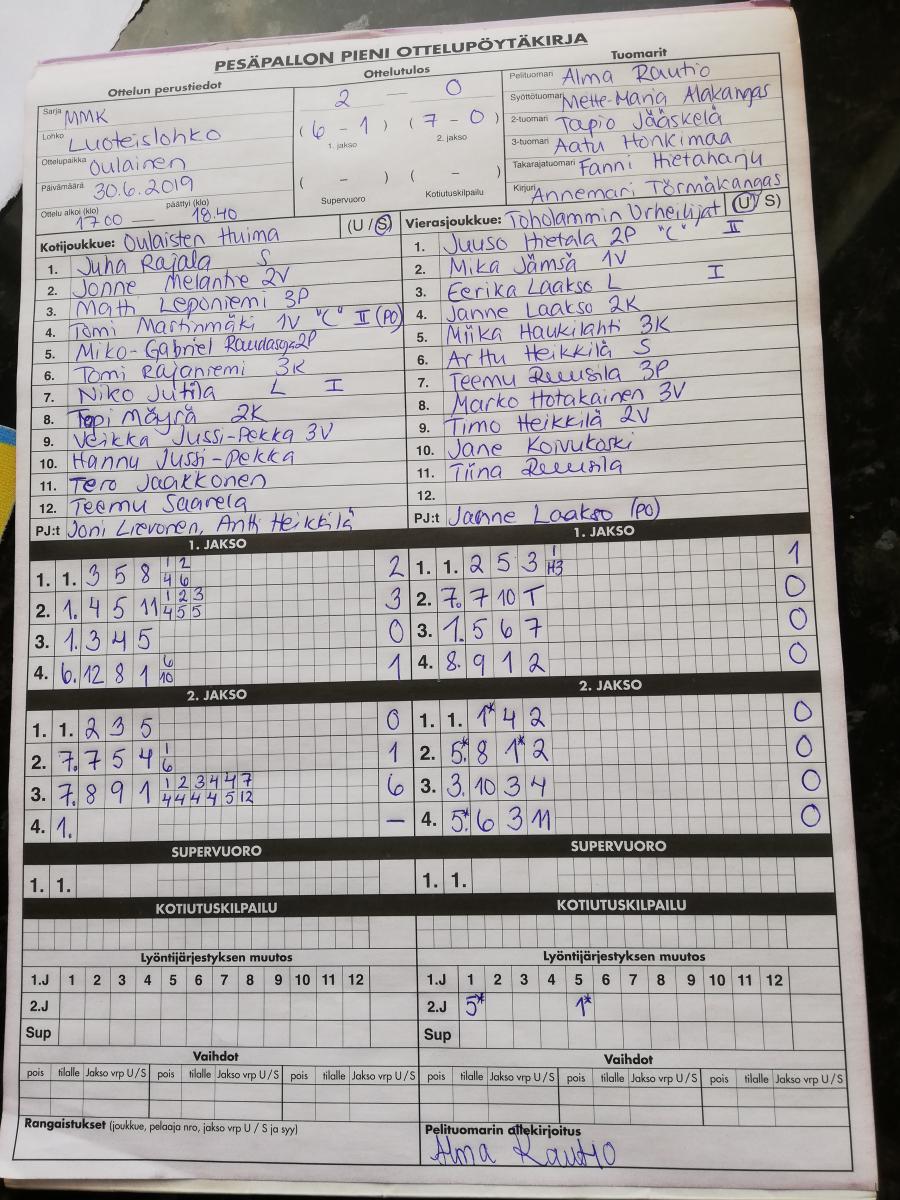 PESÄPALLON PIENI OTTELUPÖYTÄKIRJA
Ottelun perustiedot
Sarja MMK
Lohko Luoteislohko
Ottelupaikka Oulainen
Päivämäärä 30.6.2019
Ottelu alkoi (klo) päättyi (klo)
1700 — 18.40
Ottelutulos
2 — 0
( 6 - 1 ) ( 7 - 0 )
1. jakso 2. jakso
( - ) ( - )
Supervuoro Kotiutuskilpailu
Tuomarit
Pelituomari Alma Rautio
Syöttötuomari Mette-Maria Alakangas
2-tuomari Tapio Jääskelä
3-tuomari Aatu Honkimaa
Takarajatuomari Fanni Hietaharju
Kirjuri Annemari Törmäkangas
Kotijoukkue: Oulaisten Huima (U / S)
1. Juha Rajala S
2. Jonne Melantie 2V
3. Matti Leponiemi 3P
4. Tomi Martinmäki 1V "C" II (PO)
5. Miko-Gabriel Raudasoja 2P
6. Tomi Rajaniemi 3K
7. Niko Jutila L I
8. Topi Mäyrä 2K
9. Veikka Jussi-Pekka 3V
10. Hannu Jussi-Pekka
11. Tero Jaakkonen
12. Teemu Saarela
PJ:t Joni Lievonen, Antti Heikkilä
Vierasjoukkue: Toholammin Urheilijat (U / S)
1. Juuso Hietala 2P "C" II
2. Mika Jämsä 1V
3. Eerika Laakso L I
4. Janne Laakso 2K
5. Miika Haukilahti 3K
6. Arttu Heikkilä S
7. Teemu Ruusila 3P
8. Marko Hotakainen 3V
9. Timo Heikkilä 2V
10. Jane Koivukoski
11. Tiina Ruusila
12.
PJ:t Janne Laakso (PO)
1. JAKSO
1 2
1. 1. 3 5 8 2
4 6
1 2 3
2. 1. 4 5 11 3
4 5 5
3. 1. 3 4 5 0
6
4. 6. 12 8 1 1
10
1. JAKSO
1
1. 1. 2 5 3 1
H3
2. 7. 7 10 T 0
3. 1. 5 6 7 0
4. 8. 9 1 2 0
2. JAKSO
1. 1. 2 3 5 0
1
2. 7. 7 5 4 1
6
1 2 3 4 4 7
3. 7. 8 9 1 6
4 4 4 4 5 12
4. 1. —
2. JAKSO
1. 1. 1* 4 2 0
2. 5* 8 1* 2 0
3. 3. 10 3 4 0
4. 5* 6 3 11 0
SUPERVUORO
1. 1.
SUPERVUORO
1. 1.
KOTIUTUSKILPAILU
KOTIUTUSKILPAILU
Lyöntijärjestyksen muutos
1.J 1 2 3 4 5 6 7 8 9 10 11 12
2.J
Sup
Lyöntijärjestyksen muutos
1.J 1 2 3 4 5 6 7 8 9 10 11 12
2.J 5* 1*
Sup
Vaihdot
pois tilalle Jakso vrp U/S pois tilalle Jakso vrp U/S pois tilalle Jakso vrp U/S
Vaihdot
pois tilalle Jakso vrp U/S pois tilalle Jakso vrp U/S pois tilalle Jakso vrp U/S
Rangaistukset (joukkue, pelaaja nro, jakso vrp U / S ja syy)
Pelituomarin allekirjoitus
Alma Rautio